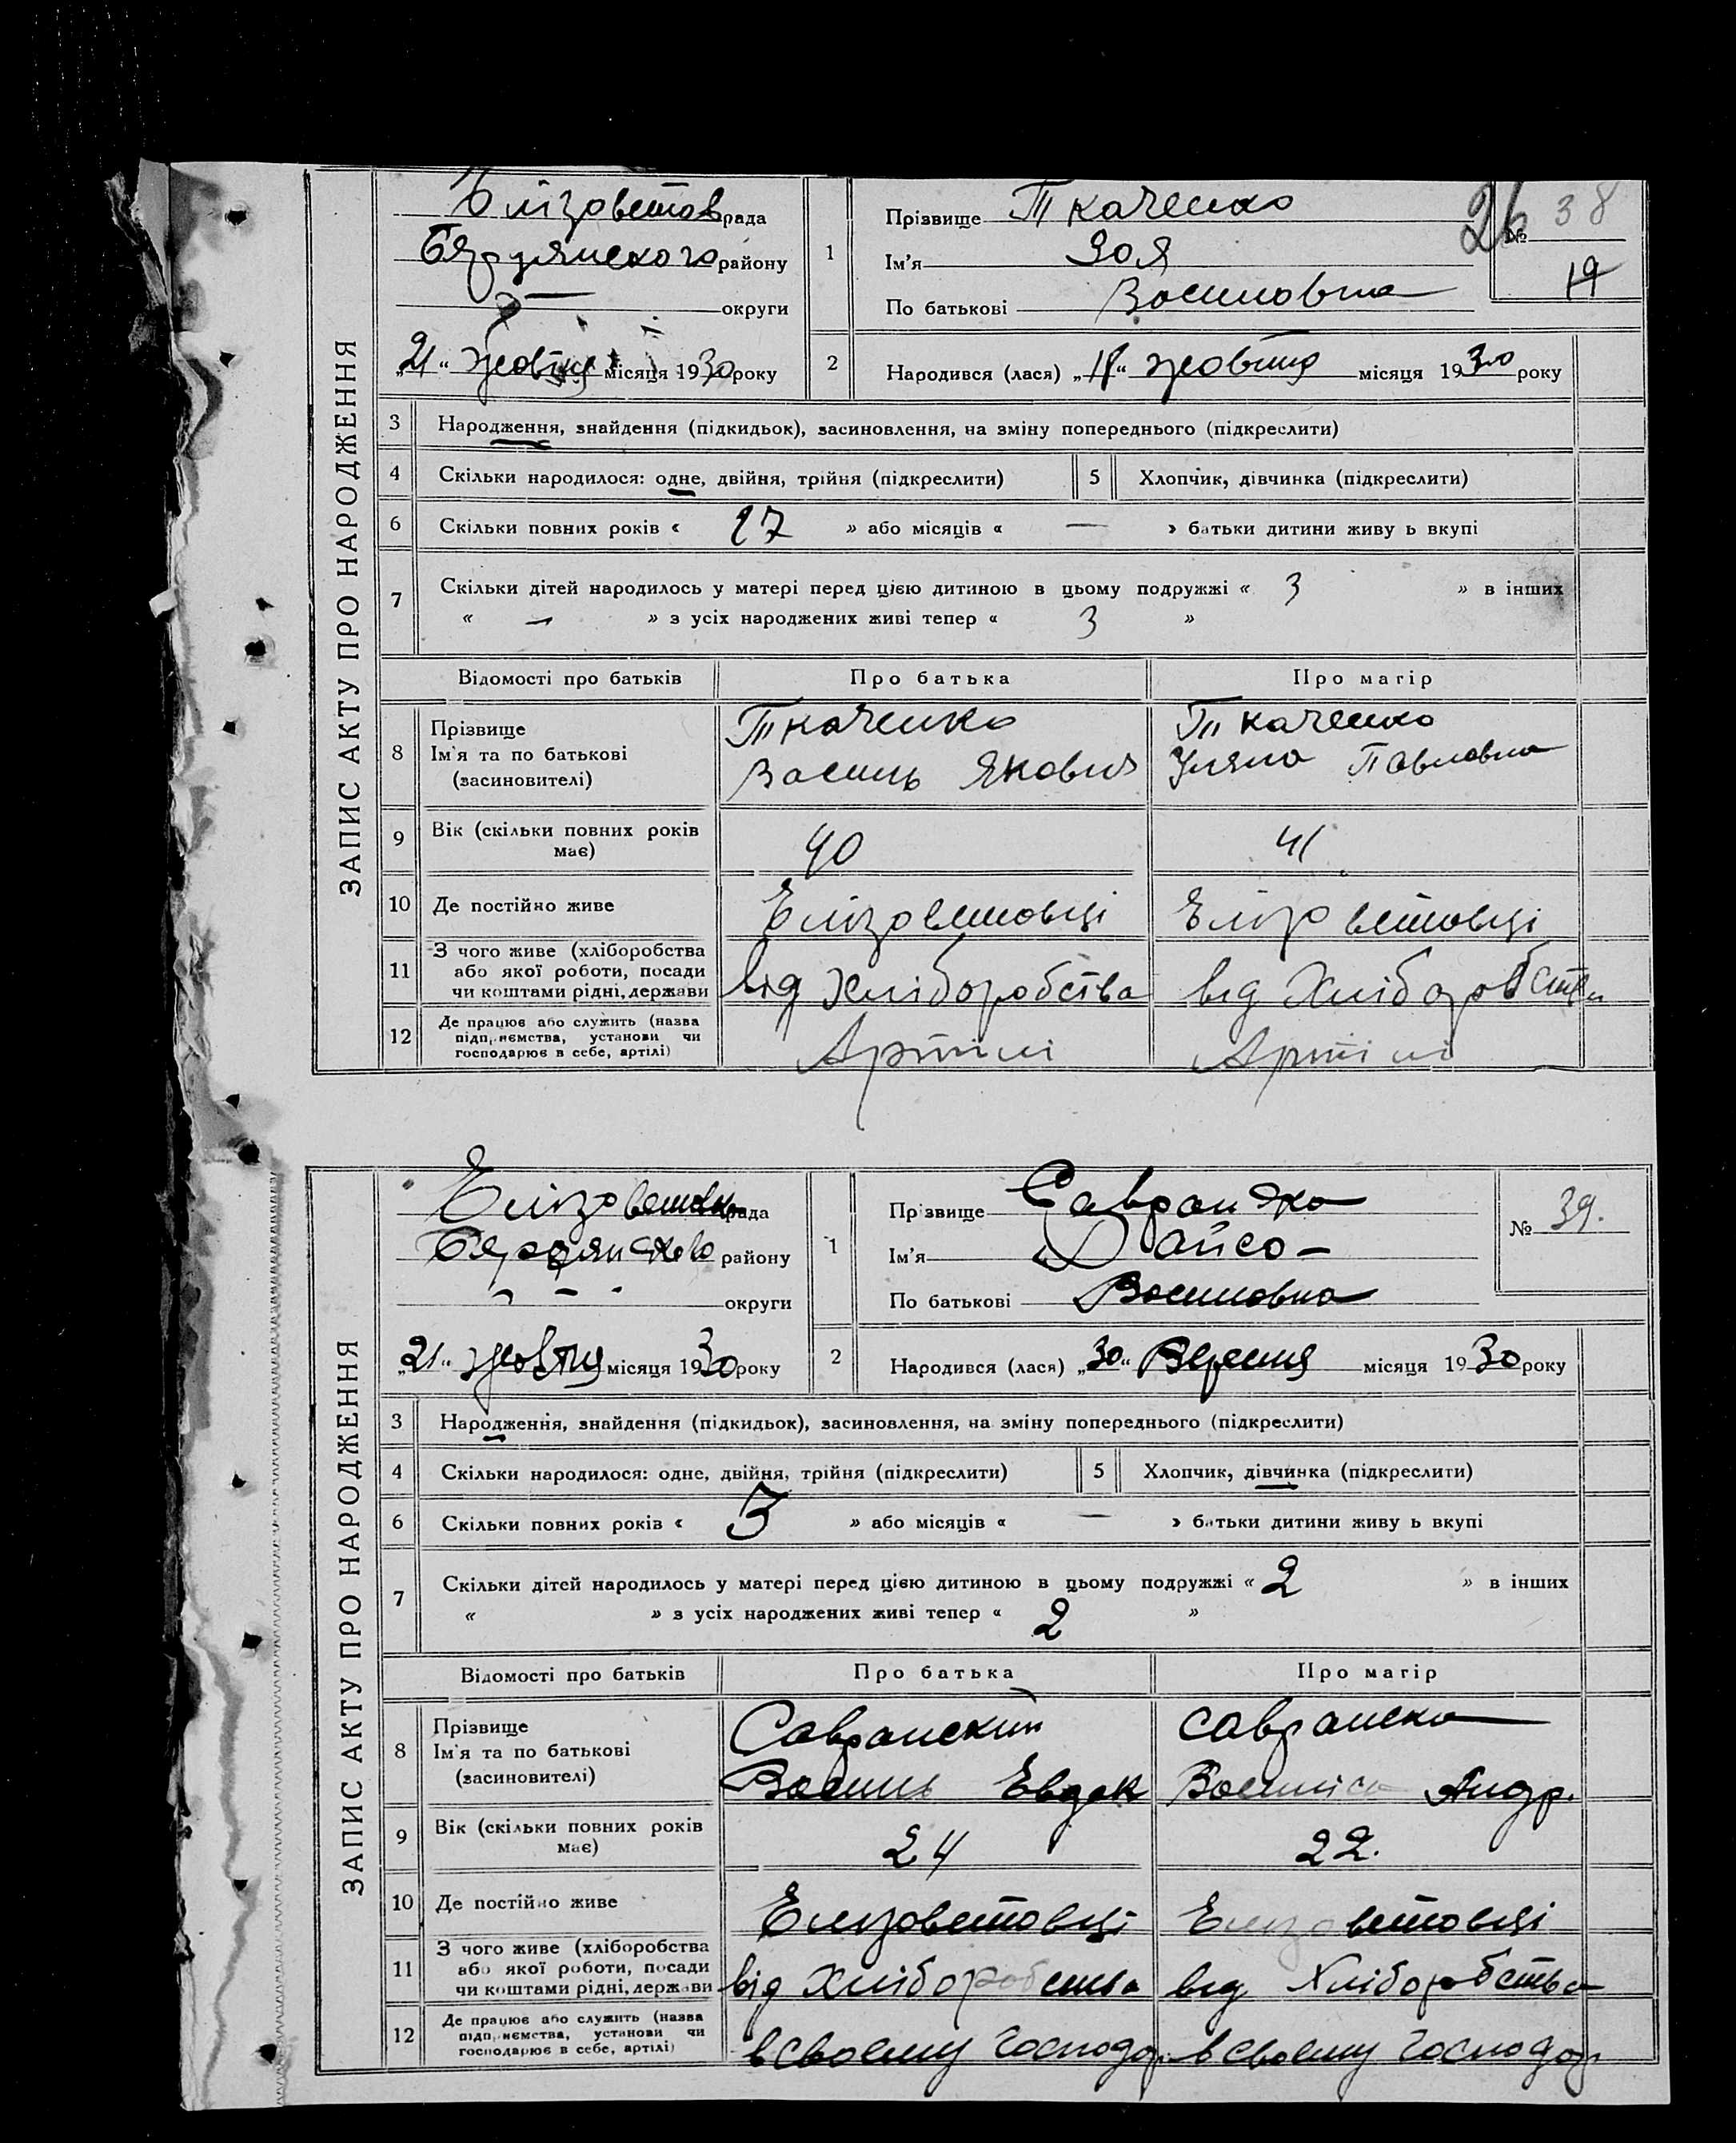 ЗАПИС АКТУ ПРО НАРОДЖЕННЯ
Елізоветов рада
Бердянського району
— округи
„21“ жовтня місяця 1930 року
1
Прізвище Ткаченко
Ім'я Зоя
По батькові Василовна
26 № 38
19
2 Народився (лася) „ “ жовтня місяця 1930 року
3 Народження, знайдення (підкидьок), засиновлення, на зміну попереднього (підкреслити)
4 Скільки народилося: одне, двійня, трійня (підкреслити) 5 Хлопчик, дівчинка (підкреслити)
6 Скільки повних років « 17 » або місяців « — » батьки дитини живу ь вкупі
7 Скільки дітей народилось у матері перед цією дитиною в цьому подружжі « 3 » в інших
« — » з усіх народжених живі тепер « 3 »
Відомості про батьків Про батька Про матір
8 Прізвище Ім'я та по батькові (засиновителі)
Ткаченко
Василь Якович
Ткаченко
Уляна Павловна
9 Вік (скільки повних років має) 40 41
10 Де постійно живе Елізоветовці Елізоветовці
11 З чого живе (хліборобства або якої роботи, посади чи коштами рідні, держави від Хліборобства від Хліборобства
12 Де працює або служить (назва підприємства, установи чи господарює в себе, артілі) Артілі Артілі
ЗАПИС АКТУ ПРО НАРОДЖЕННЯ
рада
району
- - - округи
„21“ жовтня місяця 1930 року
1
Прізвище
Ім'я
По батькові Василовна
№ 39.
2 Народився (лася) „30“ Вересня місяця 1930 року
3 Народження, знайдення (підкидьок), засиновлення, на зміну попереднього (підкреслити)
4 Скільки народилося: одне, двійня, трійня (підкреслити) 5 Хлопчик, дівчинка (підкреслити)
6 Скільки повних років « » або місяців « — » батьки дитини живу ь вкупі
7 Скільки дітей народилось у матері перед цією дитиною в цьому подружжі « 2 » в інших
« » з усіх народжених живі тепер « 2 »
Відомості про батьків Про батька Про матір
8 Прізвище Ім'я та по батькові (засиновителі)
Савранский
Василь Евдок
Савранска
Андр.
9 Вік (скільки повних років має) 24 22.
10 Де постійно живе Елізоветовці Елізоветовці
11 З чого живе (хліборобства або якої роботи, посади чи коштами рідні, держави від Хліборобства від Хліборобства
12 Де працює або служить (назва підприємства, установи чи господарює в себе, артілі) в своему господар в своему господар